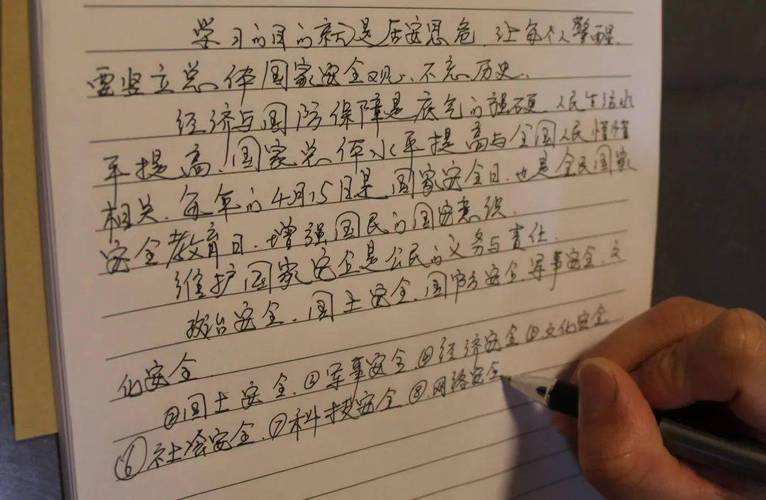 学习的目的就是居安思危,让每个人警醒.
要坚立总体国家安全观,不忘历史.
经济与国防保障是底气的强硬,人民生活水
平提高,国家总体水平提高与全国人民
相关.每年的4月15日是国家安全日,也是全民国家
安全教育日.增强国民的国安意识.
维护国家安全是公民的义务与责任.
政治安全.国土安全.国防安全.军事安全.文
化安全
②国土安全.③军事安全④经济安全⑤文化安全
⑥社会安全.⑦科技安全⑧网络安全